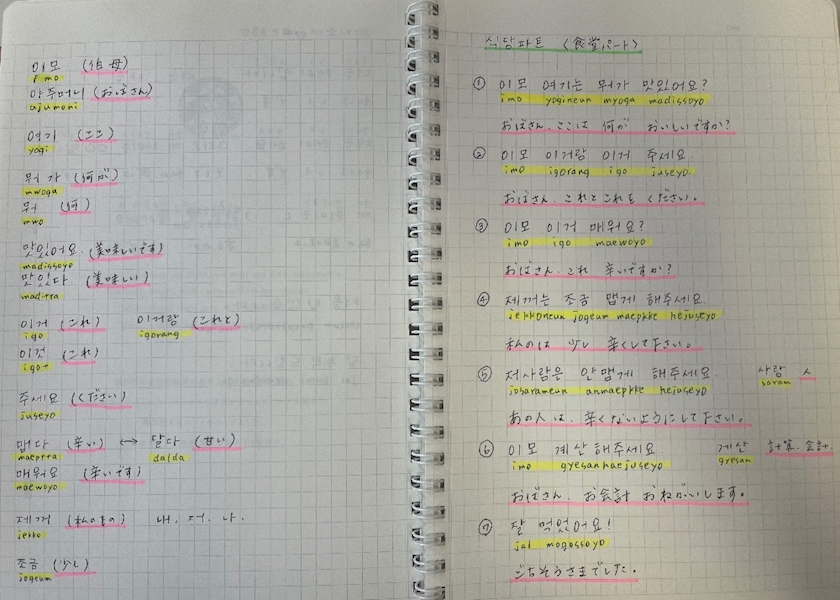 이모 (伯母)
imo
아주머니 (おばさん)
ajumoni
여기 (ここ)
yogi
뭐가 (何が)
mwoga
뭐 (何)
mwo
맛있어요 (美味しいです)
madissoyo
맛있다 (美味しい)
maditta
이거 (これ) 이거랑 (これと)
igo igorang
이것 (これ)
igot
주세요 (ください)
juseyo
맵다 (辛い) ↔ 달다 (甘い)
maeptta dalda
매워요 (辛いです)
maewoyo
제꺼 (私のもの) 내, 저, 나.
jekko
조금 (少し)
jogeum
식당파트 〈食堂パート〉
① 이모 여기는 뭐가 맛있어요?
imo yogineun myoga madissoyo
おばさん、ここは 何が おいしいですか?
② 이모 이거랑 이거 주세요
imo igorang igo juseyo
おばさん、これと これを ください。
③ 이모 이거 매워요?
imo igo maewoyo
おばさん、これ 辛いですか?
④ 제꺼는 조금 맵게 해주세요.
jekkoneun jogeum maepkke hejuseyo
私のは 少し 辛くして下さい。
⑤ 저사람은 안맵게 해주세요. 사람 人
josarameun anmaepkke hejuseyo saram
あの人は、辛くないようにして下さい。
⑥ 이모 계산해주세요 계산 計算、会計
imo gyesanhaejuseyo gyesan
おばさん、お会計 おねがいします。
⑦ 잘 먹었어요!
jal mogossoyo
ごちそうさまでした。